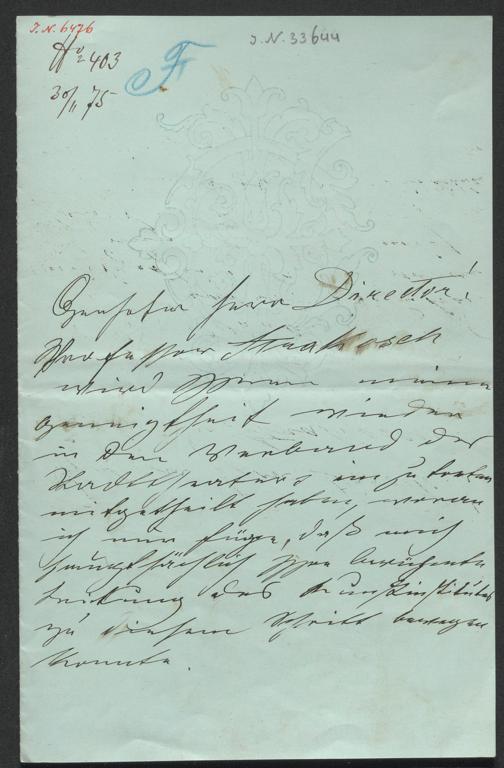 I.N. 6476
I.N. 33644
No 403
F
30/11 75
Geehrter Herr Director!
Professor Strakosch
wird Ihnen meine
Geneigtheit wieder
in den Verband des
Stadttheaters einzutreten
mitgetheilt haben, woran
ich nur füge, daß mich
hauptsächlich Ihre berühmte
Leitung des Kunstinstitutes
zu diesem Schritt bewegen
konnte.